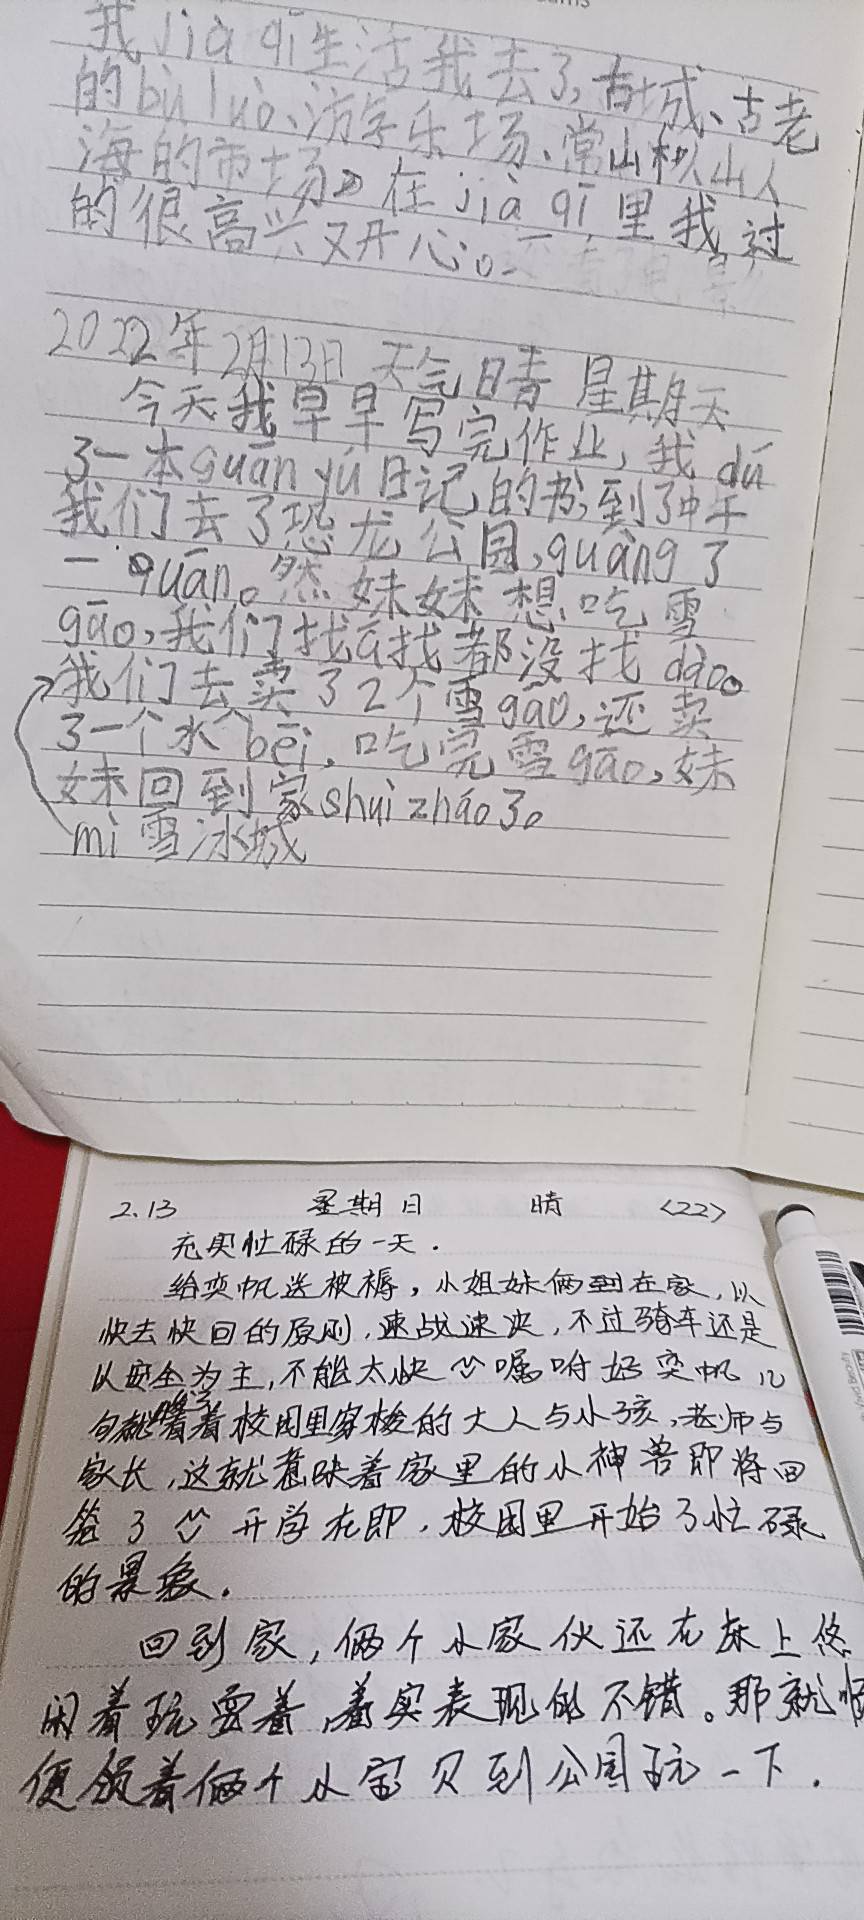 我jià qī生活我去了,古城、古老
的bù luò、游乐场、常山 山人
海的市场。在jià qī里我过
的很高兴又开心。
2022年2月13日 天气晴 星期天
今天我早早写完作业,我dú
了一本guān yú日记的书,到了中午
我们去了恐龙公园,guàng了
一quān。然 妹妹想吃雪
gāo,我们找ā找都没找dào。
我们去卖了2个雪gāo,还卖
了一个水bēi,吃完雪gāo,妹
妹回到家shuì zháo了。
mì雪冰城
2.13 星期日 晴 <22>
充实忙碌的一天.
给奕帆送被褥,小姐妹俩在家,以
快去快回的原则,速战速决,不过骑车还是
以安全为主,不能太快 嘱咐好奕帆几
句就 看着校园里穿梭的大人与小孩,老师与
家长,这就意味着家里的小神兽即将回
笼了 开学在即,校园里开始了忙碌
的景象.
回到家,俩个小家伙还在床上悠
闲着玩耍着,着实表现的不错。那就
便领着俩个小宝贝到公园玩一下.